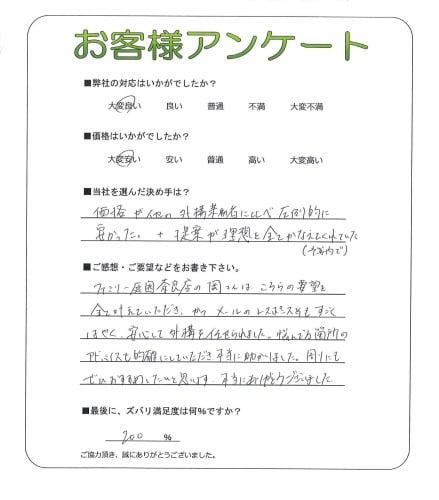 お客様アンケート
■弊社の対応はいかがでしたか？
大変良い 良い 普通 不満 大変不満
■価格はいかがでしたか？
大変安い 安い 普通 高い 大変高い
■当社を選んだ決め手は？
価格が他の外構業者に比べ圧倒的に
安かった。 + 提案が理想を全てかなえてくれていた
(予算内で)
■ご感想・ご要望などをお書き下さい。
ファミリー庭園奈良店の岡さんは、こちらの要望を
全て叶えていただき、かつメールのレスポンスもすごく
はやく、安心して外構を任せられました。悩んでる箇所の
アドバイスも的確にしていただき本当に助かりました。周りにも
ぜひおすすめしたいと思います。本当にありがとうございました
■最後に、ズバリ満足度は何%ですか？
200 %
ご協力頂き、誠にありがとうございました。